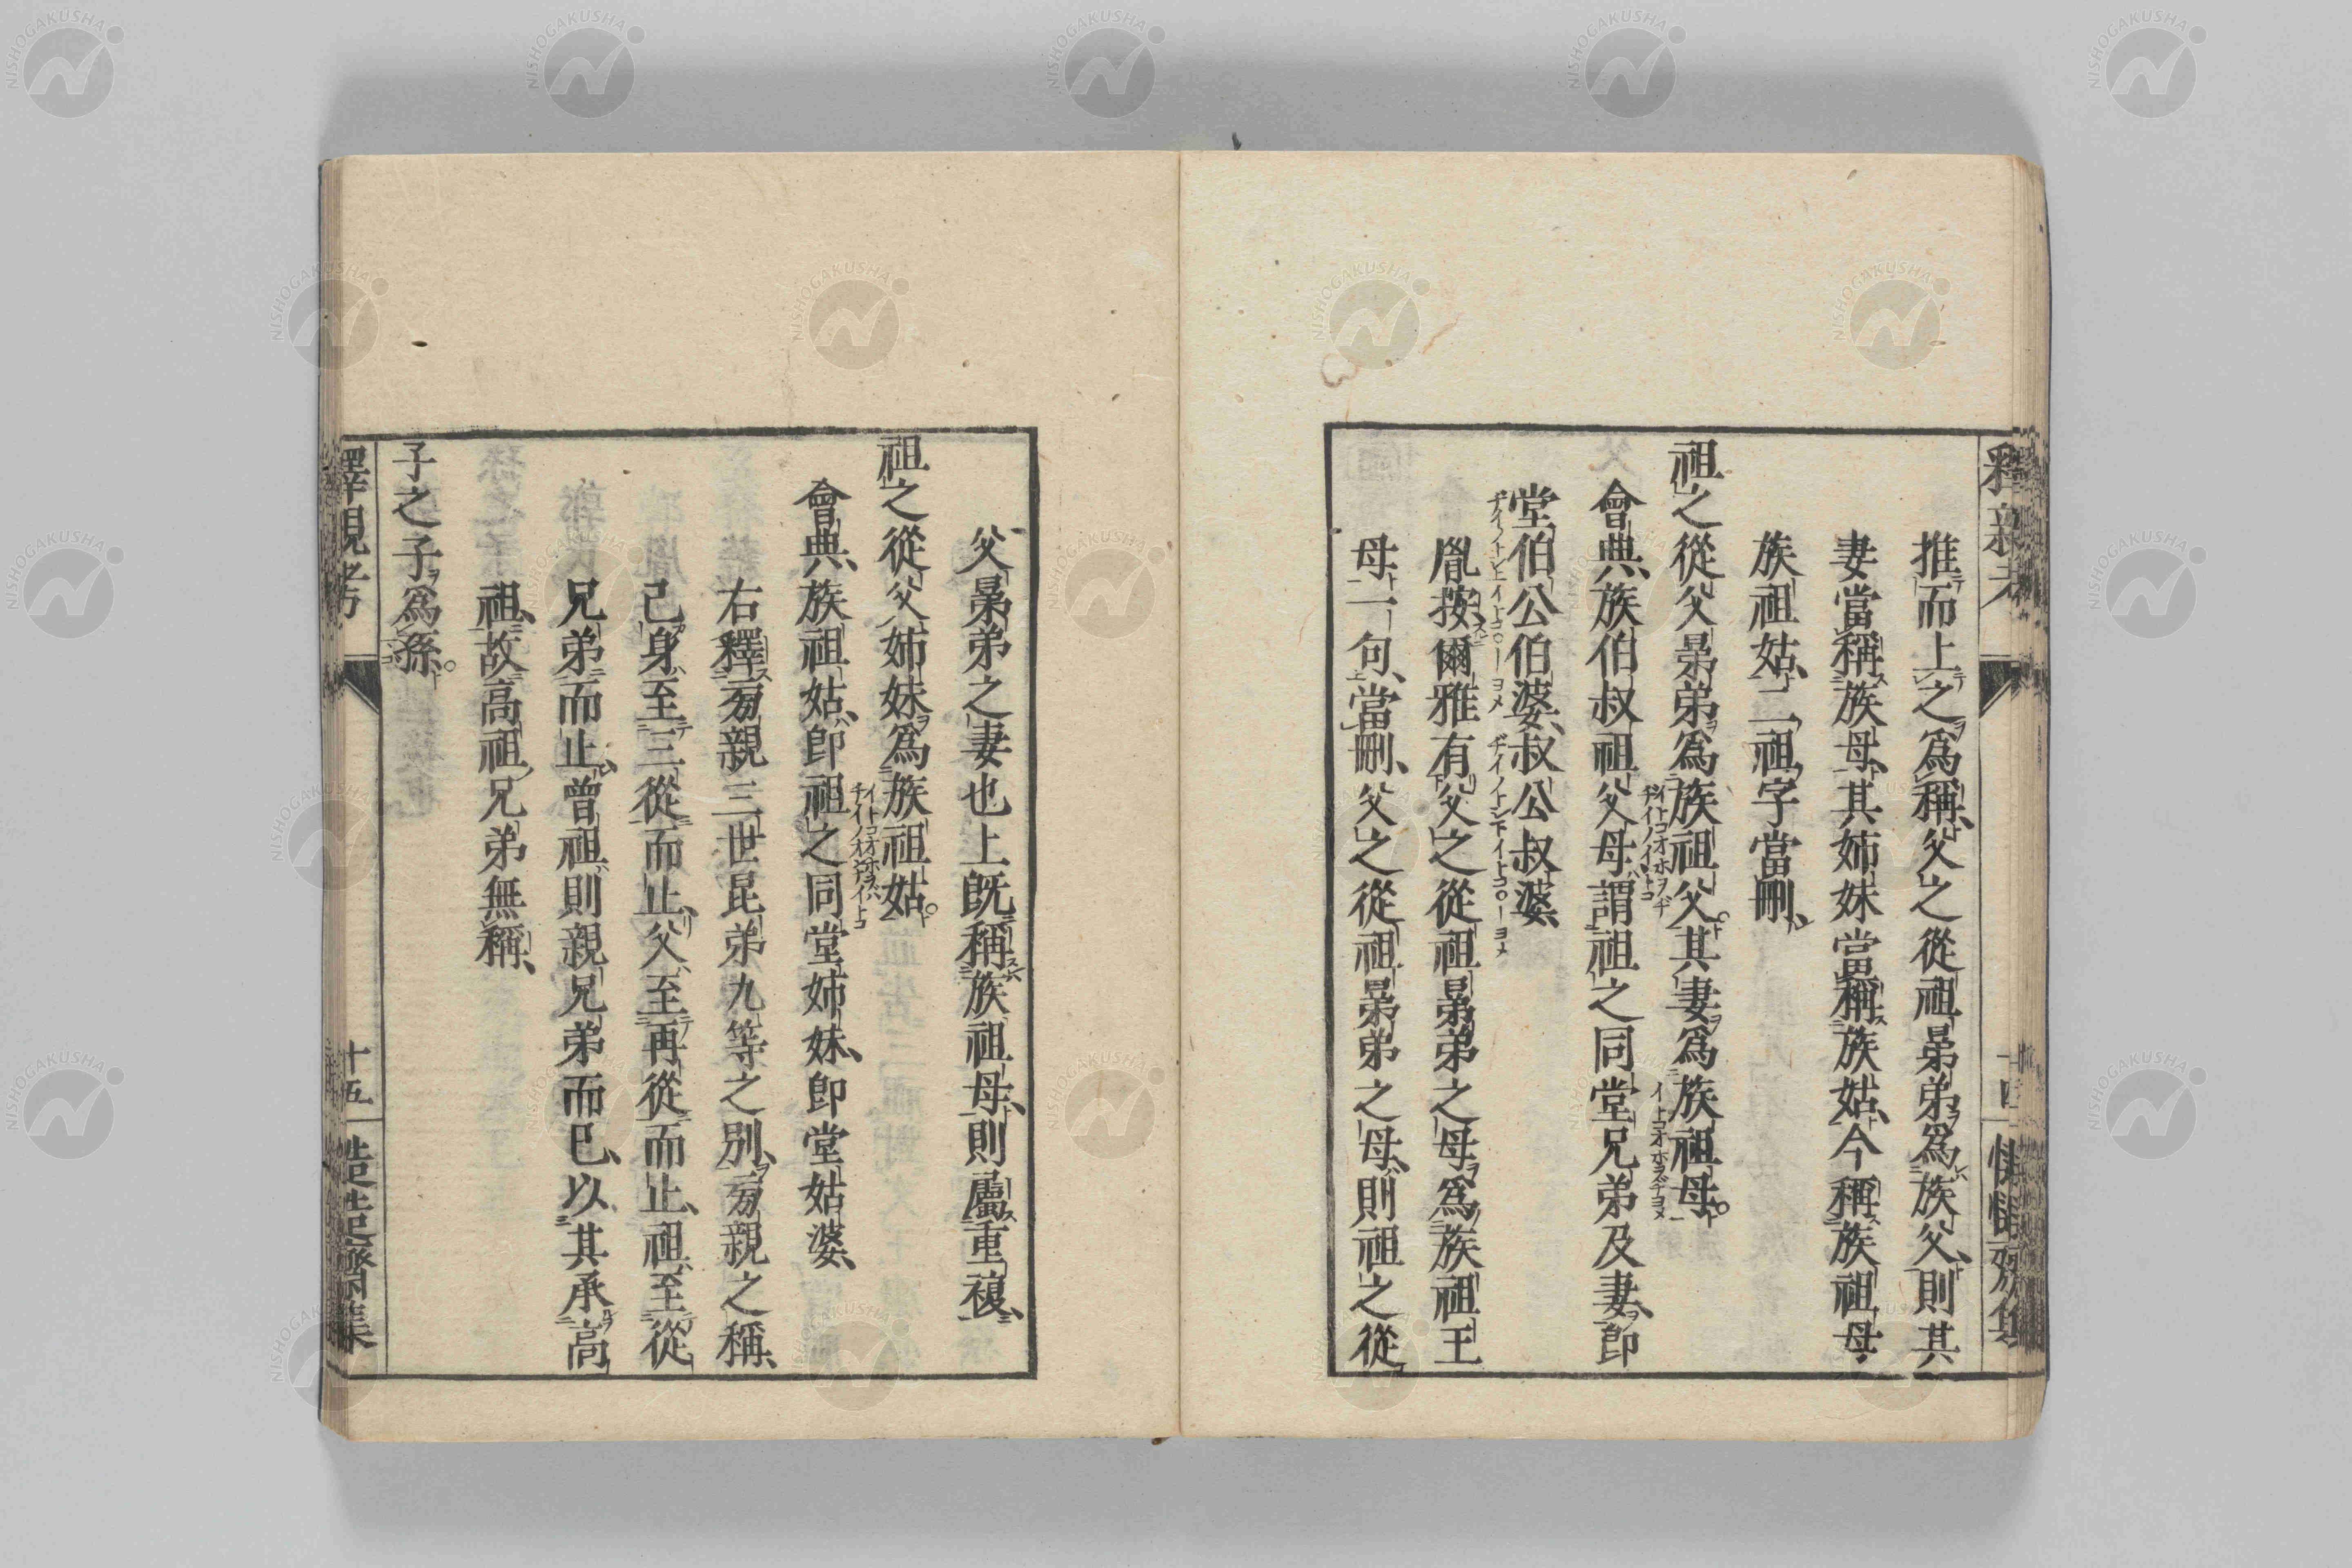 推而上之爲稱、父之從祖晜弟爲族父、則其
妻當稱族母、其姉妹當稱族姑、今稱族祖母
族祖姑、二祖字當刪、
祖之從父晜弟爲族祖父。其妻爲族祖母。
會典、族伯叔祖父母謂祖之同堂兄弟及妻、卽
堂伯公伯婆、叔公叔婆、
胤按爾雅有父之從祖晜弟之母爲族祖王
母一句、當刪、父之從祖晜弟之母、則祖之從
父晜弟之妻也上旣稱族祖母、則屬重複、
祖之從父姉妹爲族祖姑。
會典、族祖姑、卽祖之同堂姉妹、卽堂姑婆、
右釋旁親三世昆弟九等之別、旁親之稱、
己身至三從而止、父至再從而止、祖至從
兄弟而止、曾祖則親兄弟而已、以其承高
祖、故高祖兄弟無稱、
子之子爲孫。
十五